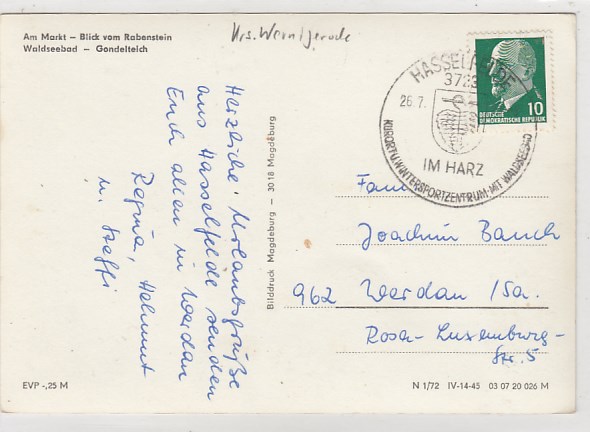 Am Markt – Blick vom Rabenstein
Waldseebad – Gondelteich
Krs. Wernigerode
HASSELFELDE
3723
26.7.
IM HARZ
KURORT U. WINTERSPORTZENTRUM MIT WALDSEEBAD
10
DEUTSCHE
DEMOKRATISCHE REPUBLIK
Herzliche Urlaubsgrüße
aus Hasselfelde senden
Euch allen in Werdau
Regina, Helmut
u. Steffi
Bilddruck Magdeburg – 3018 Magdeburg
Fam.
Joachim Bauch
962 Werdau /Sa.
Rosa-Luxemburg-
Str. 5
EVP -,25 M
N 1/72 IV-14-45 03 07 20 026 M